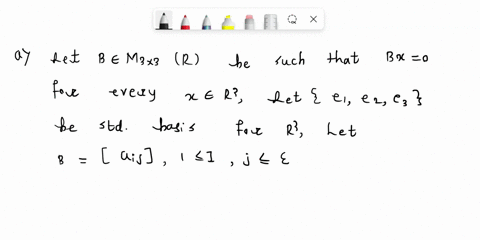 a) Let B ∈ M3x3 (R) be such that Bx = 0
for every x ∈ R³, Let { e1, e2, e3 }
be std. basis for R³, Let
B = [ aij ], 1 ≤ I, j ≤ ε